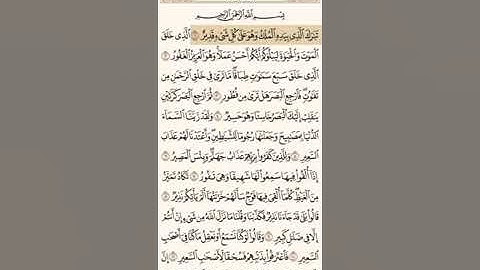 بِسْمِ ٱللَّهِ ٱلرَّحْمَٰنِ ٱلرَّحِيمِ
تَبَٰرَكَ ٱلَّذِى بِيَدِهِ ٱلْمُلْكُ وَهُوَ عَلَىٰ كُلِّ شَىْءٍ قَدِيرٌ ۝١ ٱلَّذِى خَلَقَ
ٱلْمَوْتَ وَٱلْحَيَوٰةَ لِيَبْلُوَكُمْ أَيُّكُمْ أَحْسَنُ عَمَلًا ۚ وَهُوَ ٱلْعَزِيزُ ٱلْغَفُورُ ۝٢
ٱلَّذِى خَلَقَ سَبْعَ سَمَٰوَٰتٍ طِبَاقًا ۖ مَّا تَرَىٰ فِى خَلْقِ ٱلرَّحْمَٰنِ مِن
تَفَٰوُتٍ ۖ فَٱرْجِعِ ٱلْبَصَرَ هَلْ تَرَىٰ مِن فُطُورٍ ۝٣ ثُمَّ ٱرْجِعِ ٱلْبَصَرَ كَرَّتَيْنِ
يَنقَلِبْ إِلَيْكَ ٱلْبَصَرُ خَاسِئًا وَهُوَ حَسِيرٌ ۝٤ وَلَقَدْ زَيَّنَّا ٱلسَّمَآءَ
ٱلدُّنْيَا بِمَصَٰبِيحَ وَجَعَلْنَٰهَا رُجُومًا لِّلشَّيَٰطِينِ ۖ وَأَعْتَدْنَا لَهُمْ عَذَابَ
ٱلسَّعِيرِ ۝٥ وَلِلَّذِينَ كَفَرُوا۟ بِرَبِّهِمْ عَذَابُ جَهَنَّمَ ۖ وَبِئْسَ ٱلْمَصِيرُ ۝٦
إِذَآ أُلْقُوا۟ فِيهَا سَمِعُوا۟ لَهَا شَهِيقًا وَهِىَ تَفُورُ ۝٧ تَكَادُ تَمَيَّزُ
مِنَ ٱلْغَيْظِ ۖ كُلَّمَآ أُلْقِىَ فِيهَا فَوْجٌ سَأَلَهُمْ خَزَنَتُهَآ أَلَمْ يَأْتِكُمْ نَذِيرٌ ۝٨
قَالُوا۟ بَلَىٰ قَدْ جَآءَنَا نَذِيرٌ فَكَذَّبْنَا وَقُلْنَا مَا نَزَّلَ ٱللَّهُ مِن شَىْءٍ إِنْ أَنتُمْ
إِلَّا فِى ضَلَٰلٍ كَبِيرٍ ۝٩ وَقَالُوا۟ لَوْ كُنَّا نَسْمَعُ أَوْ نَعْقِلُ مَا كُنَّا فِىٓ أَصْحَٰبِ
ٱلسَّعِيرِ ۝١٠ فَٱعْتَرَفُوا۟ بِذَنۢبِهِمْ فَسُحْقًا لِّأَصْحَٰبِ ٱلسَّعِيرِ ۝١١ إِنَّ